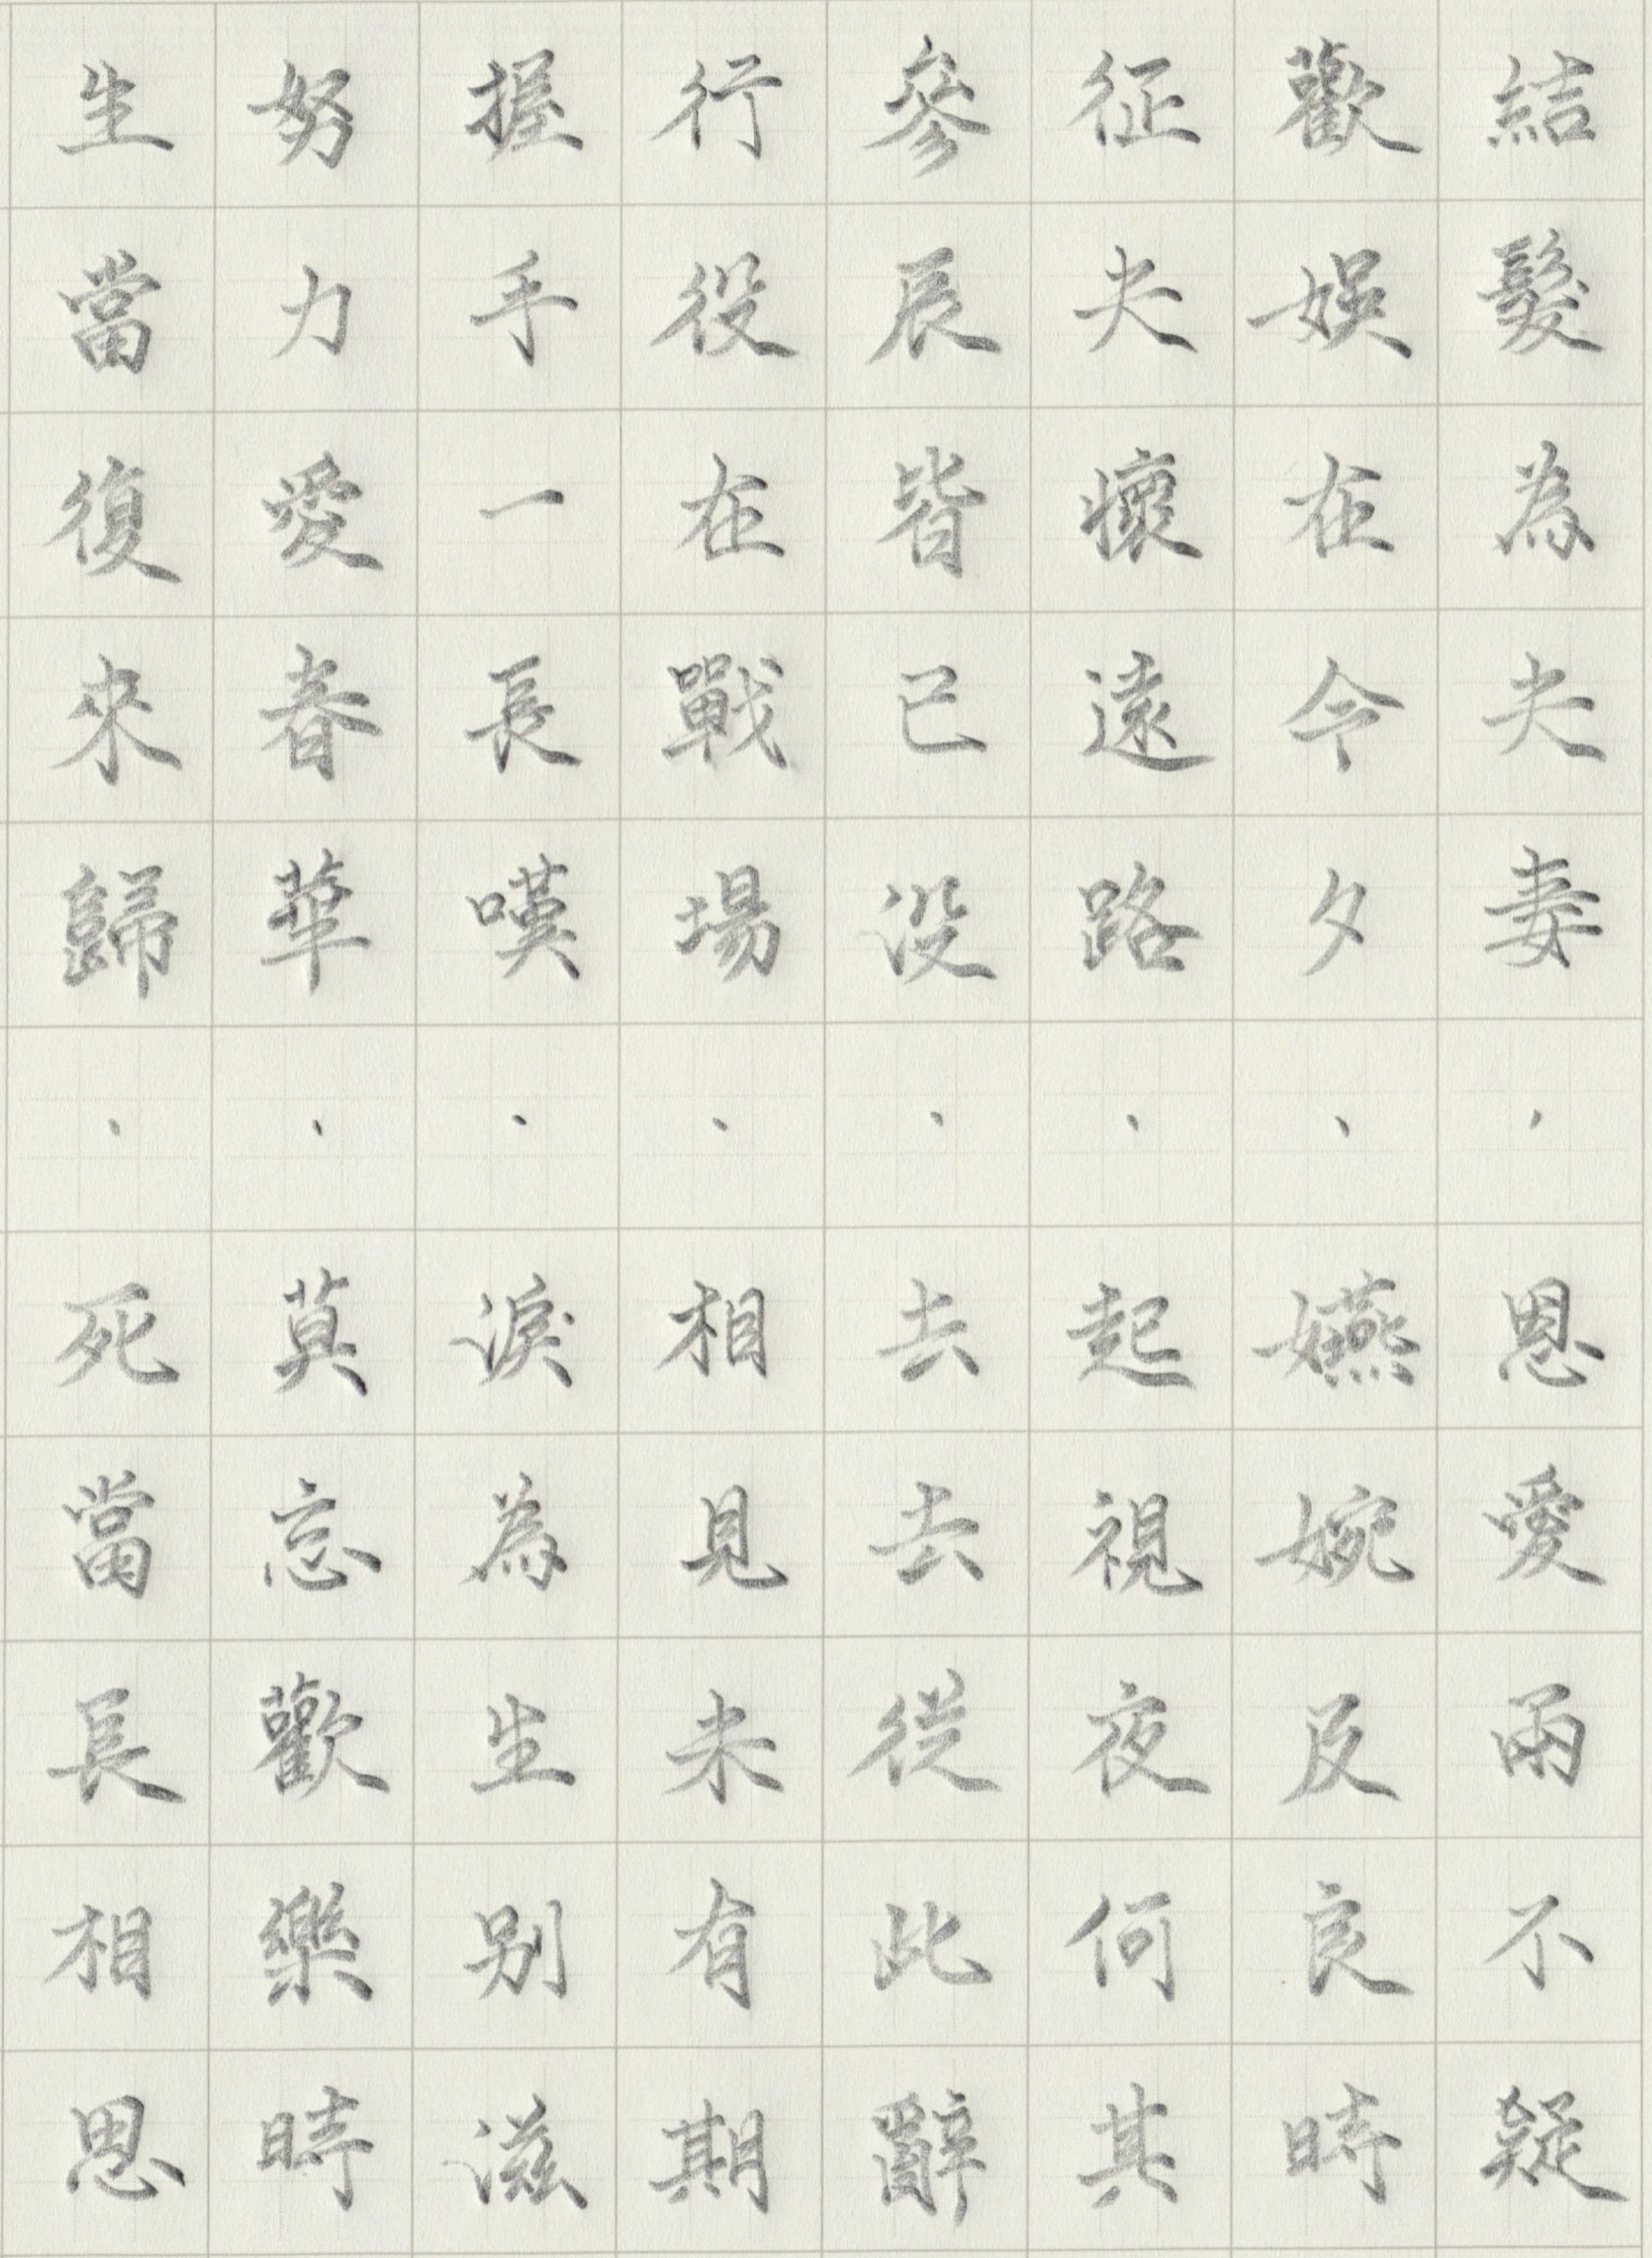 結髮為夫妻、恩愛兩不疑
歡娛在今夕、嬿婉及良時
征夫懷遠路、起視夜何其
參辰皆已没、去去從此辭
行役在戰場、相見未有期
握手一長嘆、淚為生別滋
努力愛春華、莫忘歡樂時
生當復來歸、死當長相思